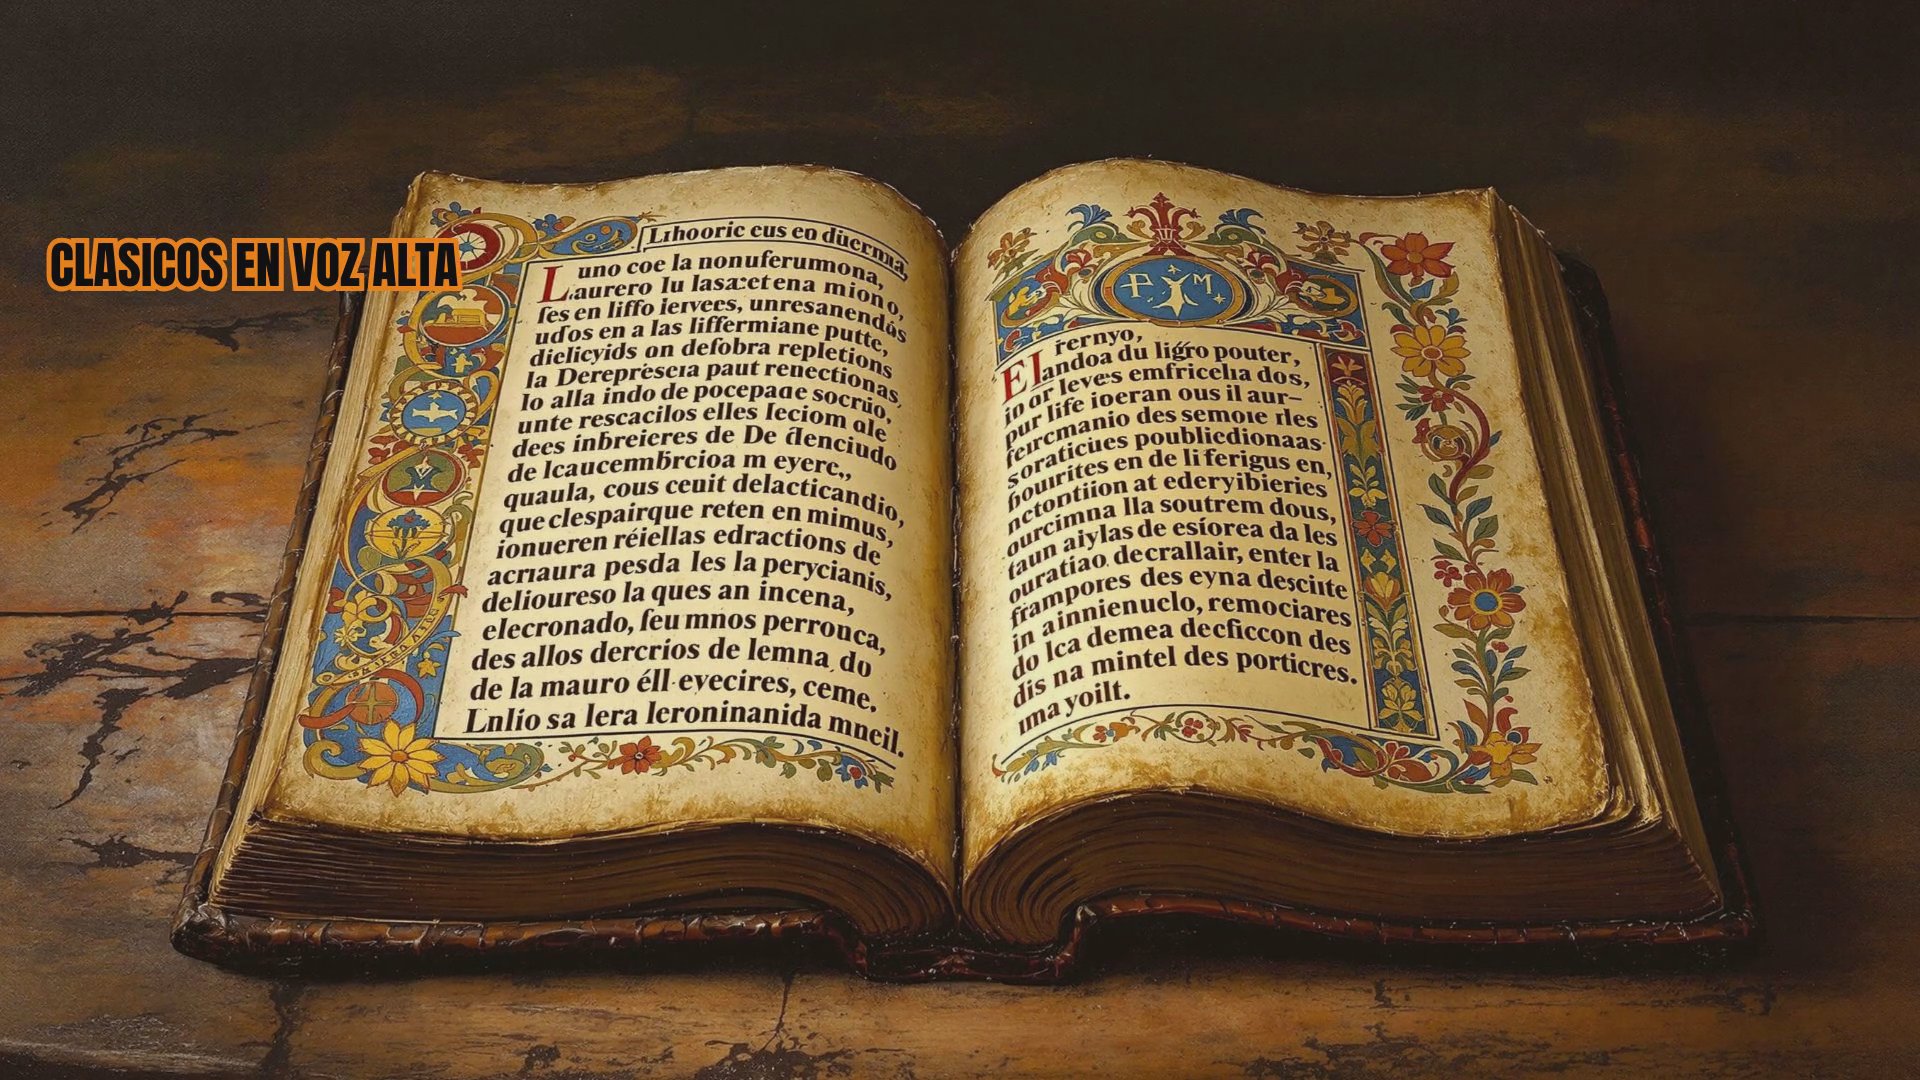 CLASICOS EN VOZ ALTA
Lıhooric eus eo düerma,
L uno coe la nonuferumona,
aurero Iu lasæetena miono,
ſes en liffo iervees, unresanendos
udos en a las liffermiane putte,
dielicyids on defobra repletions
la Dereprèseıa paut renectionas,
lo alla indo de pocepade socruo,
unte rescacilos elles Ieciom ale
dees inbreieres de De dlenciudo
de Icaucembrcioa m eyerc,,
quaula, cous ceuit delacticandio,
que clespairque reten en mimus,
ionueren réiellas edractions de
acrıaura pesda les la perycianis,
delioureso la ques an incena,
elecronado, feu mnos perrouca,
des allos dercrios de lemna do
de la mauro éll eyecires, ceme.
Lnlío sa lera leroninanida mneil.
P M
rernyo,
El andoa du ligro pouter,
in or leves emfricelıa dos,
pur life ioeran ous il aur-
feurcmanio des semoıe rles
soraticues poubliedionaas
bouirites en de li ferigus en,
nctontiion at ederyibieries
ourcimna lla soutrem dous,
taun aiylas de esiorea da les
ouratiao decrallair, enter la
frampores des eyna desciite
in ainnienuclo, remociares
do Ica demea decficcon des
dis na mintel des porticres.
ıma yoilt.